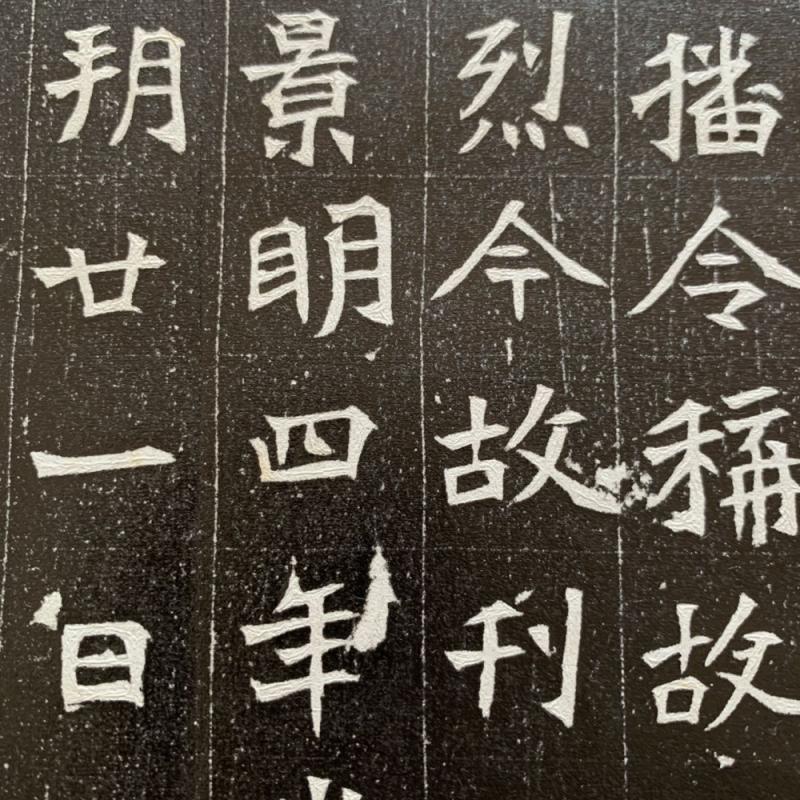 播令稱故
烈今故刊
景明四年
朔廿一日